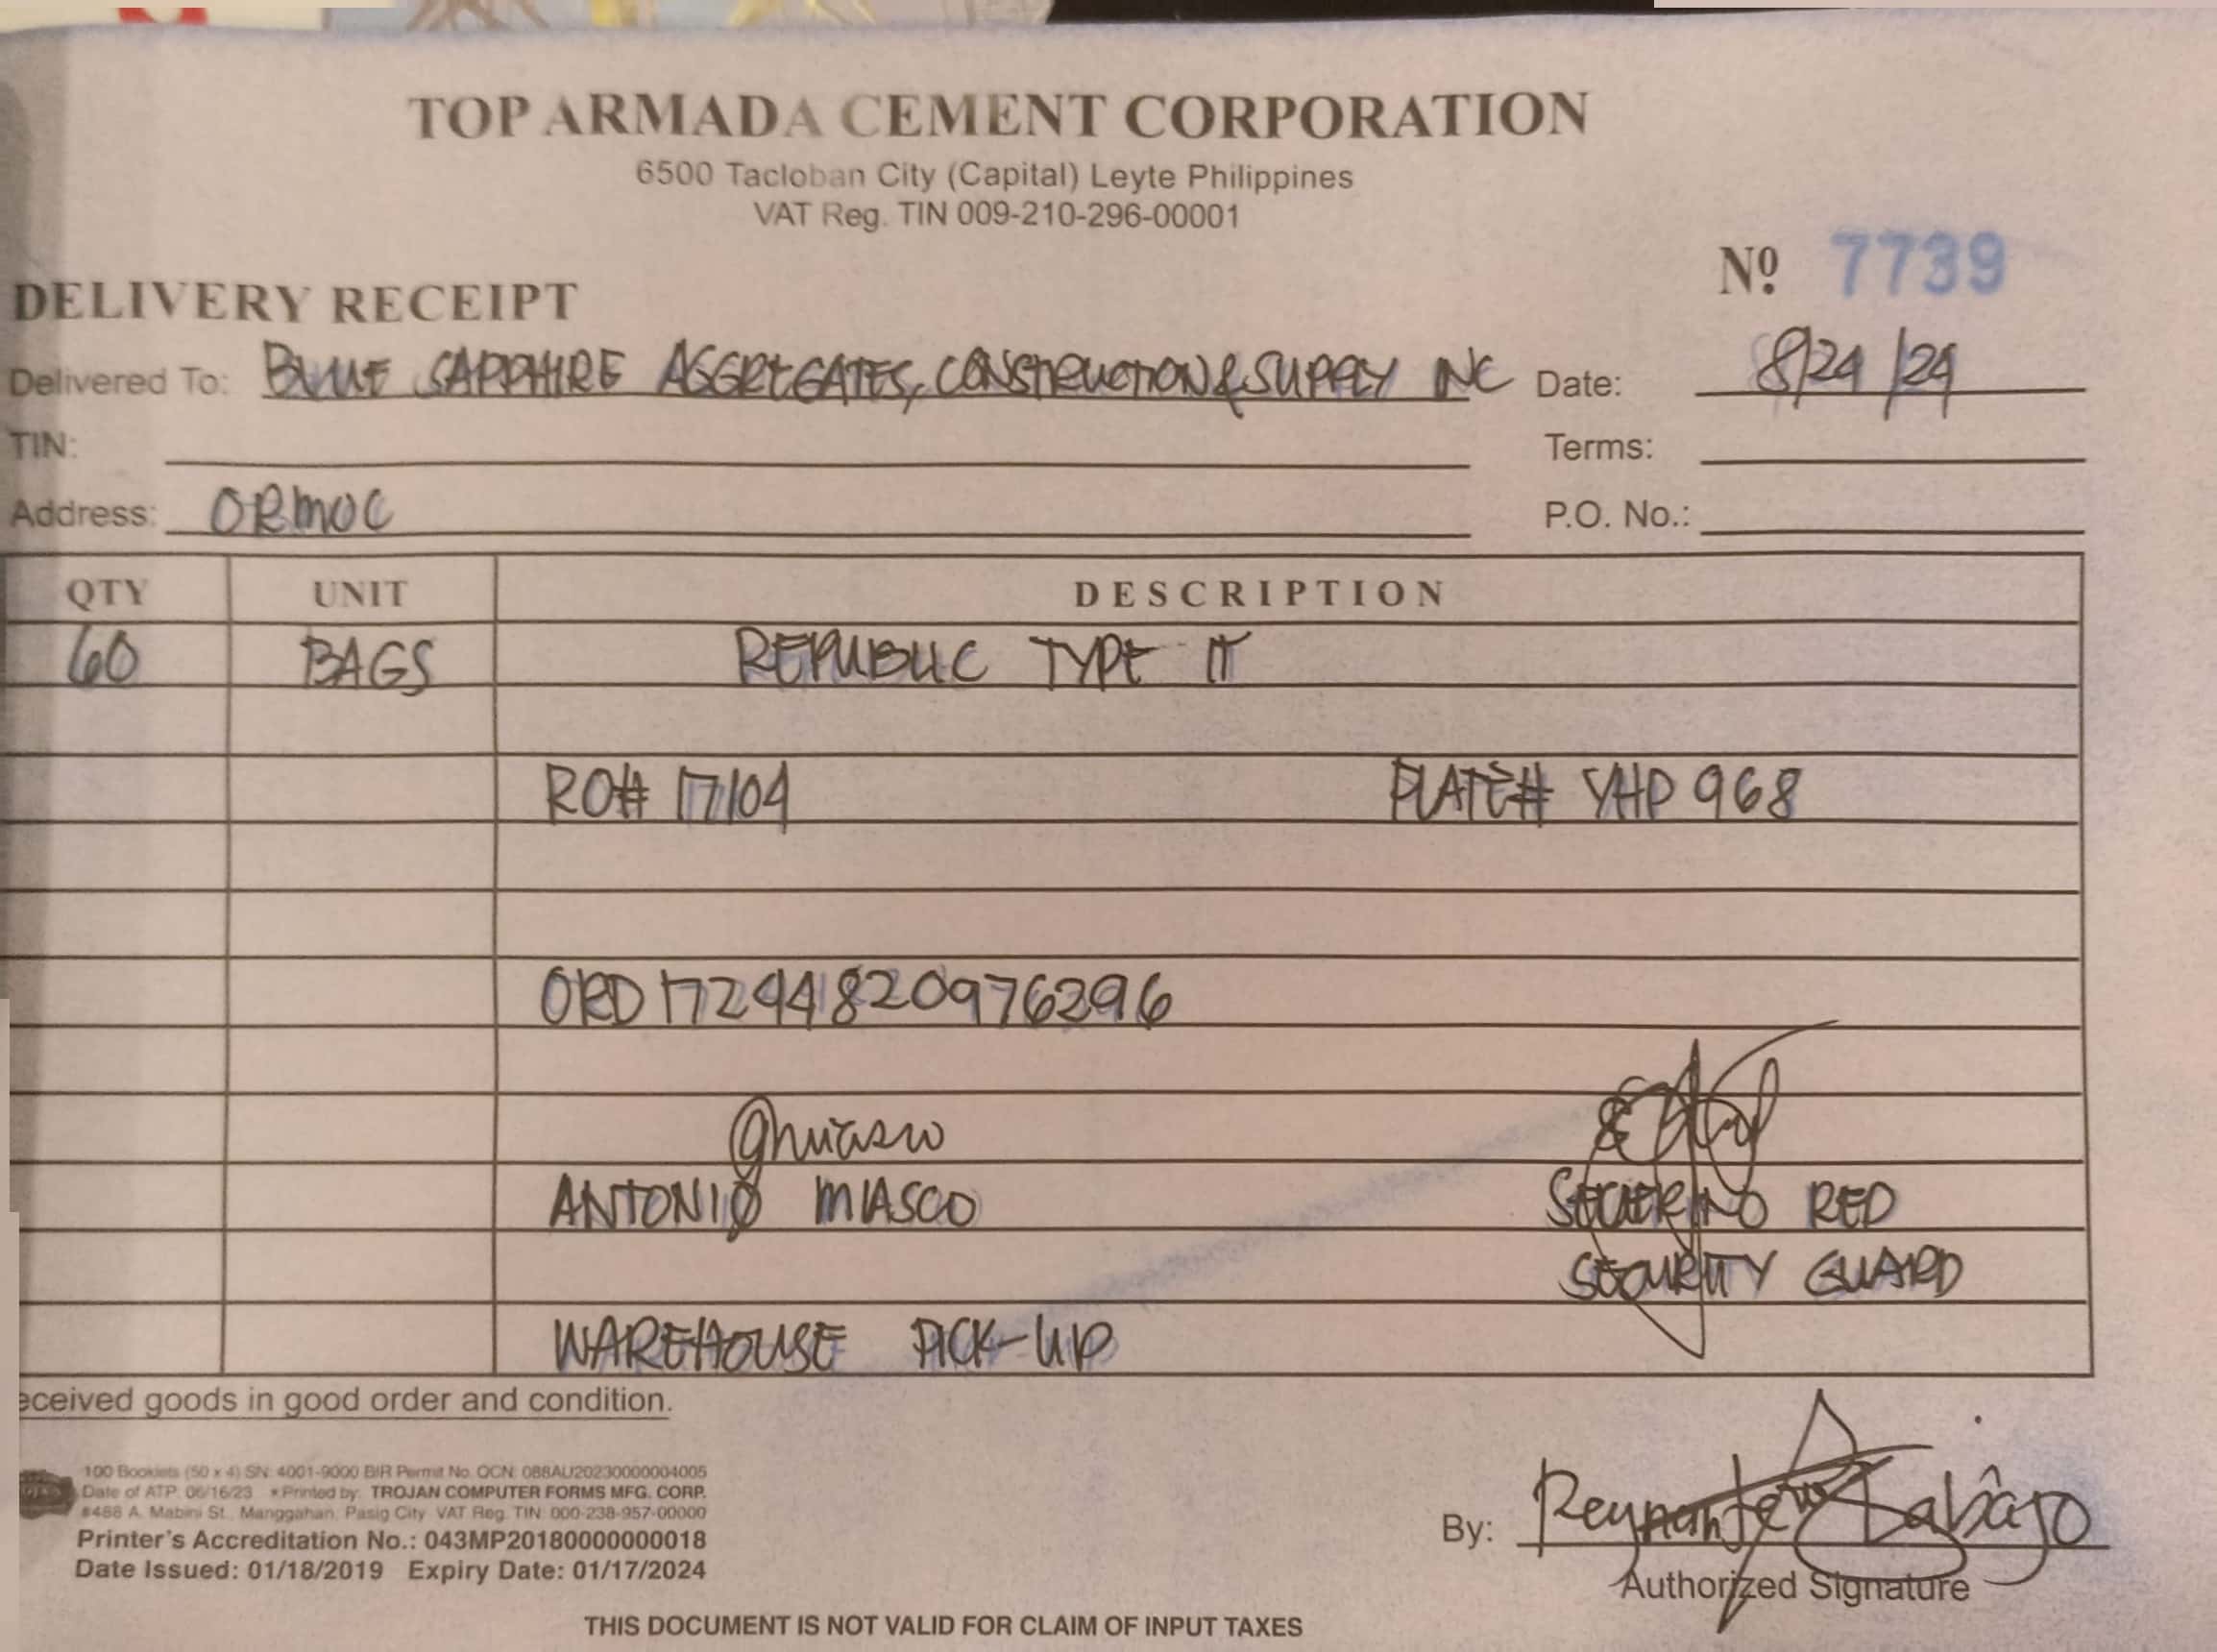 TOP ARMADA CEMENT CORPORATION
6500 Tacloban City (Capital) Leyte Philippines
VAT Reg. TIN 009-210-296-00001
Nº 7739
DELIVERY RECEIPT
Delivered To: BLUE SAPPHIRE AGGREGATES, CONSTRUCTION & SUPPLY INC Date: 8/24/24
TIN: Terms:
Address: ORMOC P.O. No.:
QTY UNIT DESCRIPTION
60 BAGS REPUBLIC TYPE IT
RO# 17104 PLATE# YHP 968
ORD17244820976296
ANTONIO MIASCO RED
SECURITY GUARD
WAREHOUSE PICK-UP
eceived goods in good order and condition.
100 Booklets (50 x 4) SN: 4001-9000 BIR Permit No. OCN: 088AU20230000004005
Date of ATP: 06/16/23 * Printed by: TROJAN COMPUTER FORMS MFG. CORP.
#488 A. Mabini St., Manggahan, Pasig City VAT Reg. TIN: 000-238-957-00000
Printer's Accreditation No.: 043MP20180000000018
Date Issued: 01/18/2019 Expiry Date: 01/17/2024
By: Reynante Labajo
Authorized Signature
THIS DOCUMENT IS NOT VALID FOR CLAIM OF INPUT TAXES